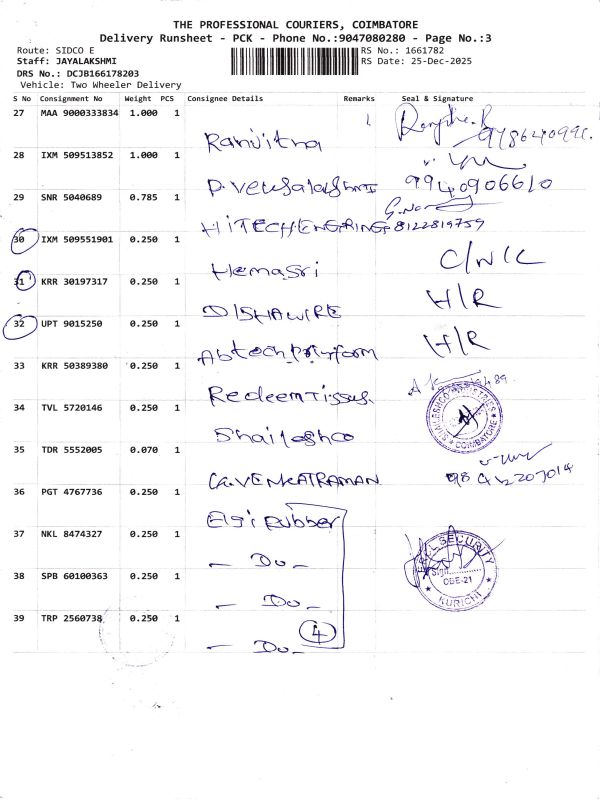 THE PROFESSIONAL COURIERS, COIMBATORE
Delivery Runsheet - PCK - Phone No.:9047080280 - Page No.:3
Route: SIDCO E
RS No.: 1661782
Staff: JAYALAKSHMI
RS Date: 25-Dec-2025
DRS No.: DCJB166178203
Vehicle: Two Wheeler Delivery
S No Consignment No Weight PCS Consignee Details Remarks Seal & Signature
27 MAA 9000333834 1.000 1
Ranjitha
28 IXM 509513852 1.000 1
P. Venkalalashmi 9940906610
29 SNR 5040689 0.785 1
HITECH ENGRING 8122819759
30 IXM 509551901 0.250 1
Hemasri C/N/C
31 KRR 30197317 0.250 1
DISHAWIRE H/R
32 UPT 9015250 0.250 1
Abtech Priyform H/R
33 KRR 50389380 0.250 1
Redeem Tissus
34 TVL 5720146 0.250 1
Shaileshco
COIMBATORE
35 TDR 5552005 0.070 1
G.VENKATRAMAN
36 PGT 4767736 0.250 1
Elgi Rubber
37 NKL 8474327 0.250 1
- Do -
SECURITY
CBE-21
KURICHI
38 SPB 60100363 0.250 1
- Do -
39 TRP 2560738 0.250 1
4
- Do -